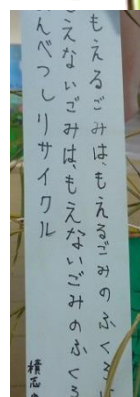 もえるごみは、もえるごみのふくろに
もえないごみは、もえないごみのふくろ
んべつしリサイクル
積志